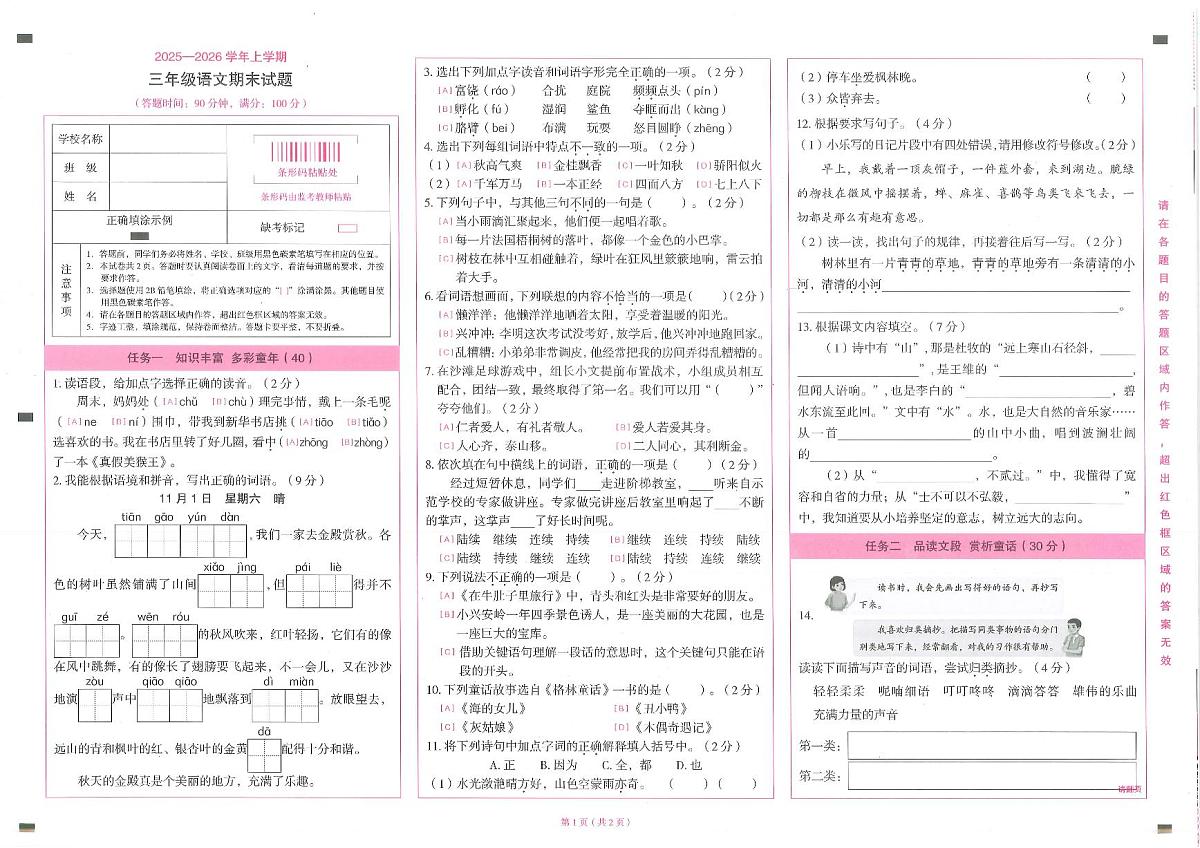 2025—2026学年上学期
三年级语文期末试题
(答题时间：90分钟，满分：100分)
学校名称
班 级
姓 名
条形码粘贴处
条形码由监考教师粘贴
正确填涂示例
缺考标记
注意事项
1. 答题前，同学们务必将姓名、学校、班级用黑色碳素笔填写在相应的位置。
2. 本试卷共2页，答题时要认真阅读卷面上的文字，看清每道题的要求，并按
要求作答。
3. 选择题使用2B铅笔填涂，将正确选项对应的“[ ]”涂满涂黑。其他题目使
用黑色碳素笔作答。
4. 请在各题目的答题区域内作答，超出红色框区域的答案无效。
5. 字迹工整，填涂规范，保持卷面整洁。答题卡要平整，不要折叠。
任务一 知识丰富 多彩童年(40)
1. 读语段，给加点字选择正确的读音。(2分)
周末，妈妈处([A]chǔ [B]chù)理完事情，戴上一条毛呢
([A]ne [B]ní)围巾，带我到新华书店挑([A]tiāo [B]tiǎo)
选喜欢的书。我在书店里转了好几圈，看中([A]zhōng [B]zhòng)
了一本《真假美猴王》。
2. 我能根据语境和拼音，写出正确的词语。(9分)
11月1日 星期六 晴
tiān gāo yún dàn
今天，，我们一家去金殿赏秋。各
xiǎo jìng pái liè
色的树叶虽然铺满了山间，但得并不
guī zé wēn róu
。的秋风吹来，红叶轻扬，它们有的像
在风中跳舞，有的像长了翅膀要飞起来，不一会儿，又在沙沙
zòu qiāo qiāo dì miàn
地演声中地飘落到。放眼望去，
dā
远山的青和枫叶的红、银杏叶的金黄配得十分和谐。
秋天的金殿真是个美丽的地方，充满了乐趣。
3. 选出下列加点字读音和词语字形完全正确的一项。(2分)
[A]富饶(ráo) 合扰 庭院 频频点头(pín)
[B]孵化(fú) 湿润 鲨鱼 夺眶而出(kàng)
[C]胳臂(bei) 布满 玩要 怒目圆睁(zhēng)
4. 选出下列每组词语中特点不一致的一项。(2分)
(1)[A]秋高气爽 [B]金桂飘香 [C]一叶知秋 [D]骄阳似火
(2)[A]千军万马 [B]一本正经 [C]四面八方 [D]七上八下
5. 下列句子中，与其他三句不同的一句是( )。(2分)
[A]当小雨滴汇聚起来，他们便一起唱着歌。
[B]每一片法国梧桐树的落叶，都像一个金色的小巴掌。
[C]树枝在林中互相碰触着，绿叶在狂风里簌簌地响，雷云拍
着大手。
6. 看词语想画面，下列联想的内容不恰当的一项是( )(2分)
[A]懒洋洋：他懒洋洋地晒着太阳，享受着温暖的阳光。
[B]兴冲冲：李明这次考试没考好，放学后，他兴冲冲地跑回家。
[C]乱糟糟：小弟弟非常调皮，他经常把我的房间弄得乱糟糟的。
7. 在沙滩足球游戏中，组长小文提前布置战术，小组成员相互
配合，团结一致，最终取得了第一名。我们可以用“( )”
夸夸他们。(2分)
[A]仁者爱人，有礼者敬人。 [B]爱人若爱其身。
[C]人心齐，泰山移。 [D]二人同心，其利断金。
8. 依次填在句中横线上的词语，正确的一项是( )(2分)
经过短暂休息，同学们____走进阶梯教室，____听来自示
范学校的专家做讲座。专家做完讲座后教室里响起了____不断
的掌声，这掌声____了好长时间呢。
[A]陆续 继续 连续 持续 [B]继续 连续 持续 陆续
[C]陆续 持续 继续 连续 [D]陆续 持续 连续 继续
9. 下列说法不正确的一项是( )。(2分)
[A]《在牛肚子里旅行》中，青头和红头是非常要好的朋友。
[B]小兴安岭一年四季景色诱人，是一座美丽的大花园，也是
一座巨大的宝库。
[C]借助关键语句理解一段话的意思时，这个关键句只能在语
段的开头。
10. 下列童话故事选自《格林童话》一书的是( )。(2分)
[A]《海的女儿》 [B]《丑小鸭》
[C]《灰姑娘》 [D]《木偶奇遇记》
11. 将下列诗句中加点字词的正确解释填入括号中。(2分)
A. 正 B. 因为 C. 全，都 D. 也
(1)水光潋滟晴方好，山色空蒙雨亦奇。 ( ) ( )
(2)停车坐爱枫林晚。 ( )
(3)众皆弃去。 ( )
12. 根据要求写句子。(4分)
(1)小乐写的日记片段中有四处错误，请用修改符号修改。(2分)
早上，我戴着一顶灰帽子，一件蓝外套，来到湖边。脆绿
的柳枝在微风中摇摆着，蝉、麻雀、喜鹊等鸟类飞来飞去，一
切都是那么有趣有意思。
(2)读一读，找出句子的规律，再接着往后写一写。(2分)
树林里有一片青青的草地，青青的草地旁有一条清清的小
河，清清的小河____
____。
13. 根据课文内容填空。(7分)
(1)诗中有“山”，那是杜牧的“远上寒山石径斜，____
____”，是王维的“____，
但闻人语响。”，也是李白的“____，碧
水东流至此回。”文中有“水”。水，也是大自然的音乐家……
从一首____的山中小曲，唱到波澜壮阔
的____。
(2)从“____，不贰过。”中，我懂得了宽
容和自省的力量；从“士不可以不弘毅，____”
中，我知道要从小培养坚定的意志，树立远大的志向。
任务二 品读文段 赏析童话(30分)
14.
读书时，我会先画出写得好的语句，再抄写
下来。
我喜欢归类摘抄。把描写同类事物的语句分门
别类地写下来，经常翻看，对我的习作很有帮助。
读读下面描写声音的词语，尝试归类摘抄。(4分)
轻轻柔柔 呢喃细语 叮叮咚咚 滴滴答答 雄伟的乐曲
充满力量的声音
第一类：
第二类：
请翻页
请在各题目的答题区域内作答，超出红色框区域的答案无效
第1页(共2页)